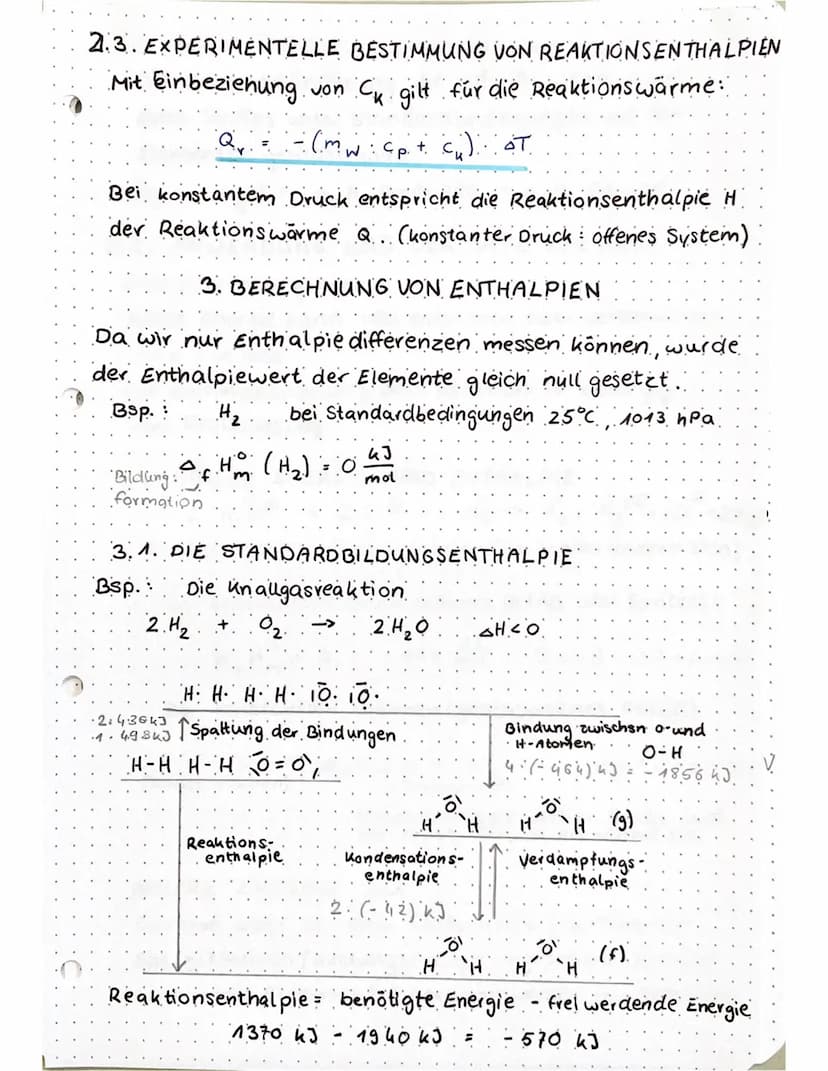 2.3. EXPERIMENTELLE BESTIMMUNG VON REAKTIONSENTHALPIEN
Mit Einbeziehung von Cₖ gilt für die Reaktionswärme:
Qᵣ = -(m_W · cₚ + Cₖ) · ΔT
Bei konstantem Druck entspricht die Reaktionsenthalpie H
der Reaktionswärme Q. (konstanter Druck: offenes System)
3. BERECHNUNG VON ENTHALPIEN
Da wir nur Enthalpiedifferenzen messen können, wurde
der Enthalpiewert der Elemente gleich null gesetzt.
Bsp.: H₂ bei Standardbedingungen 25°C, 1013 hPa
Δ_f H°_m (H₂) = 0 kJ/mol
Bildung:
formation
3.1. DIE STANDARDBILDUNGSENTHALPIE
Bsp.: Die Knallgasreaktion
2 H₂ + O₂ → 2 H₂O ΔH<0
H· H· H· H· |Ō· |Ō·
2·436kJ
1·498kJ
↑ Spaltung der Bindungen
Bindung zwischen O-und
H-Atomen O-H
4·(-464)kJ = -1856 kJ
H-H H-H O=O
H O H H O H (g)
Reaktions-
enthalpie
Kondensations-
enthalpie
2·(-42) kJ
Verdampfungs-
enthalpie
H O H H O H (f)
Reaktionsenthalpie = benötigte Energie - frei werdende Energie
1370 kJ - 1940 kJ = -570 kJ